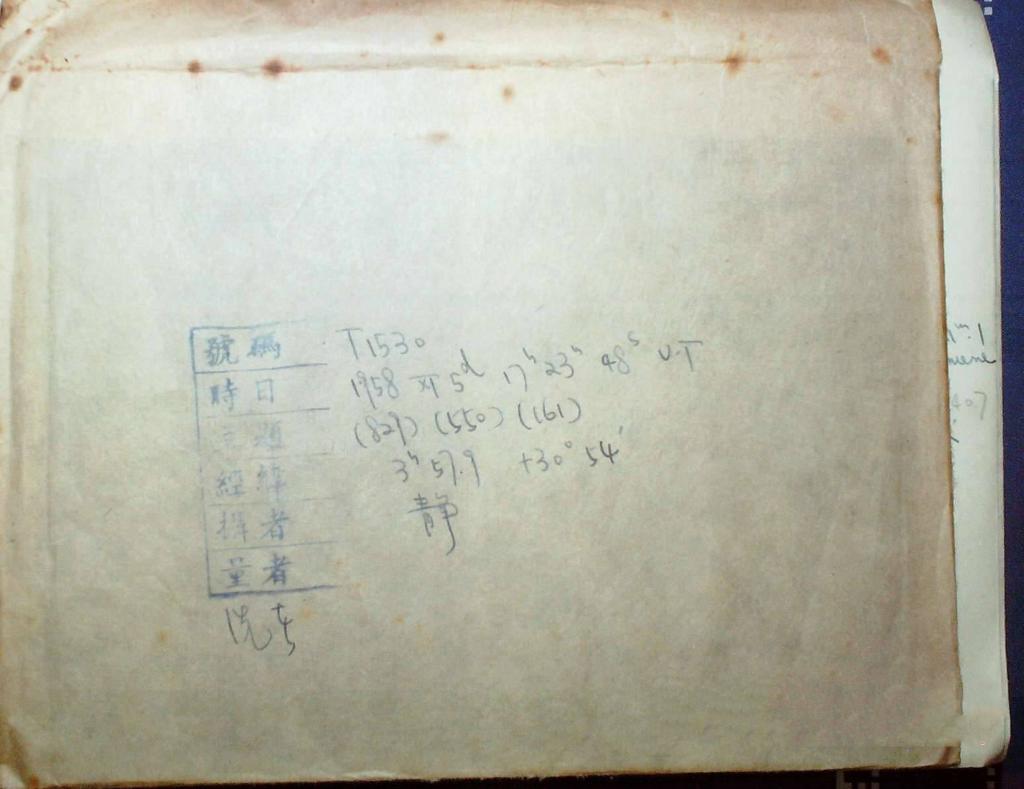 號碼 T1530
時日 1958 XI 5ᵈ 17ʰ 23ᵐ 48ˢ U.T
主題 (829) (550) (161)
經緯 3ʰ 57.9 +30° 54′
攝者 静
量者
洗者